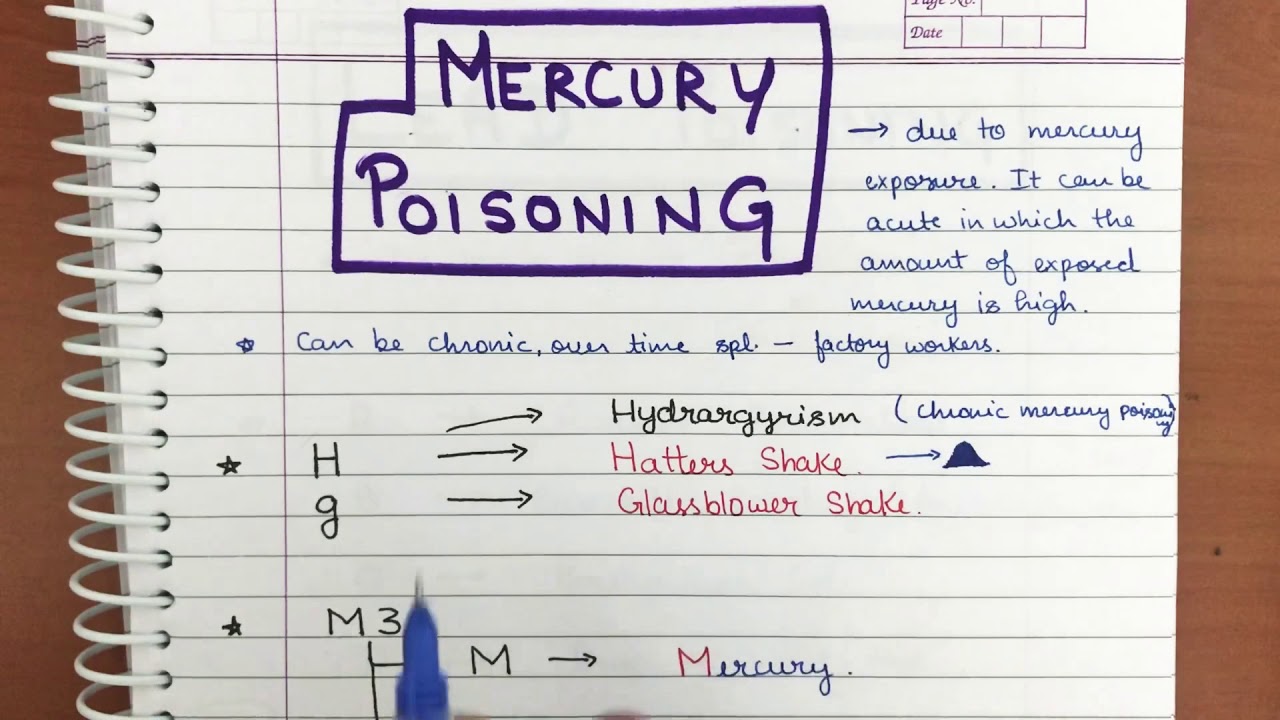 Page No.
Date
MERCURY
POISONING
→ due to mercury
exposure. It can be
acute in which the
amount of exposed
mercury is high.
☆ Can be chronic, over time spl. – factory workers.
→ Hydrargyrism (chronic mercury poisoning)
★ H → Hatters Shake. →
g → Glassblower Shake.
★ M3
M → Mercury.